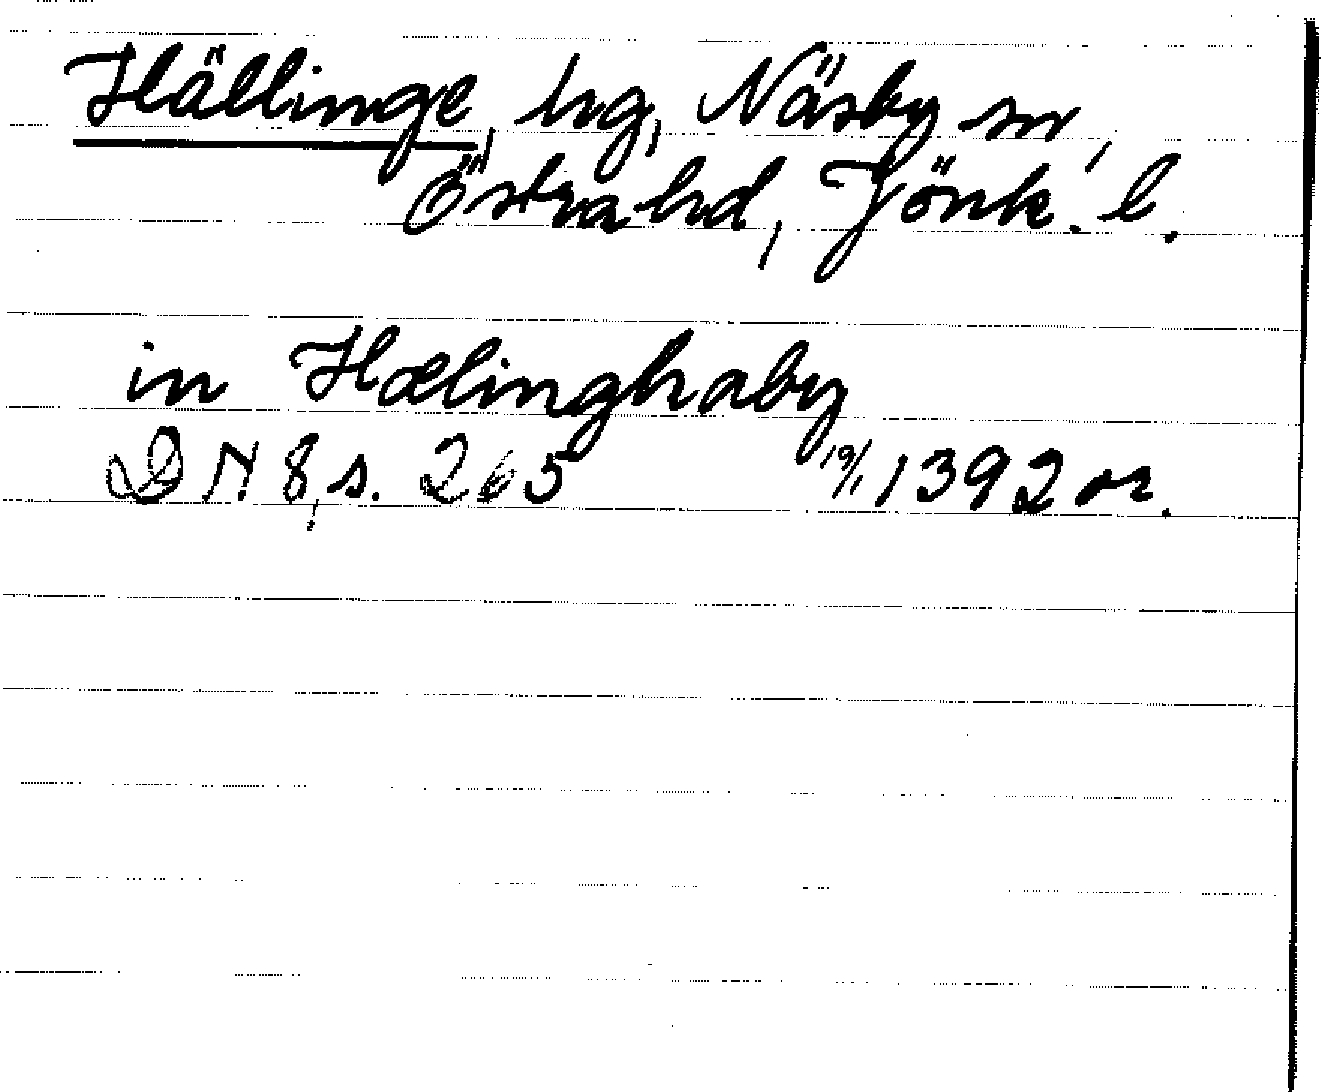 Hällinge, hg, Näsby sn,
Östra hd, Jönk. l.
in Hælinghaby
DN 8, s. 265 19/1 1392 or.